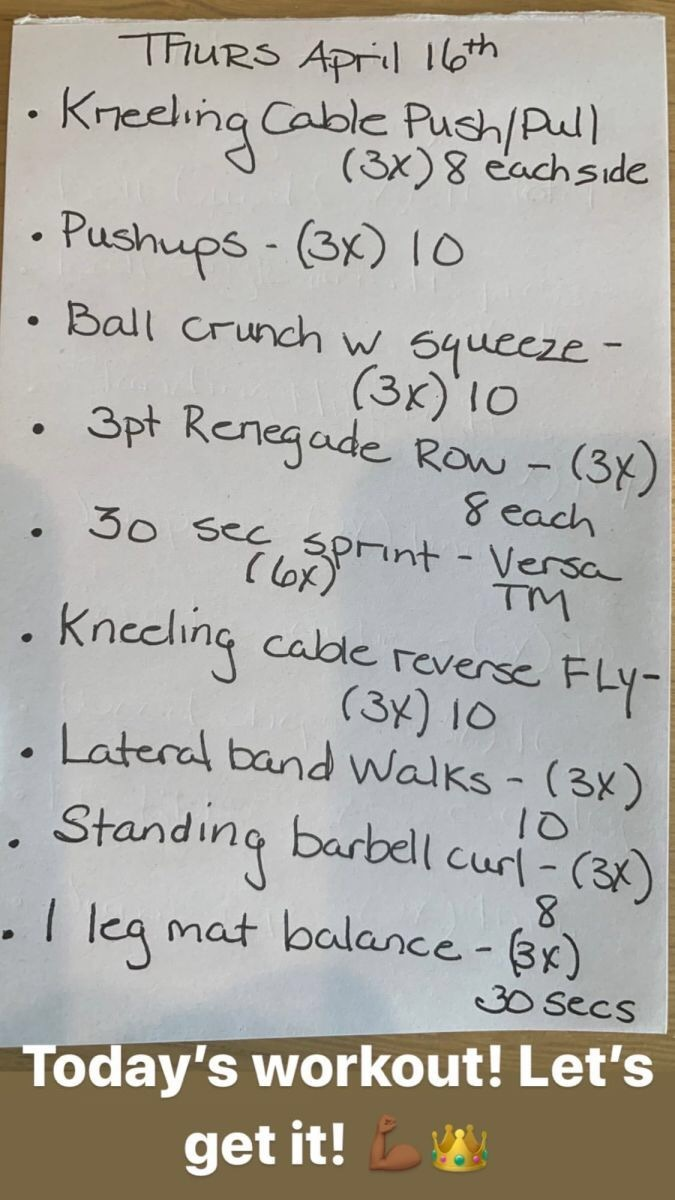 THURS April 16th
• Kneeling Cable Push/Pull
(3x) 8 each side
• Pushups - (3x) 10
• Ball crunch w squeeze -
(3x) 10
• 3pt Renegade Row - (3x)
8 each
• 30 sec sprint - Versa
(6x) TM
• Kneeling cable reverse FLy-
(3x) 10
• Lateral band Walks - (3x)
10
• Standing barbell curl - (3x)
8
• 1 leg mat balance - (3x)
30 secs
Today’s workout! Let’s
get it! 💪🏾👑